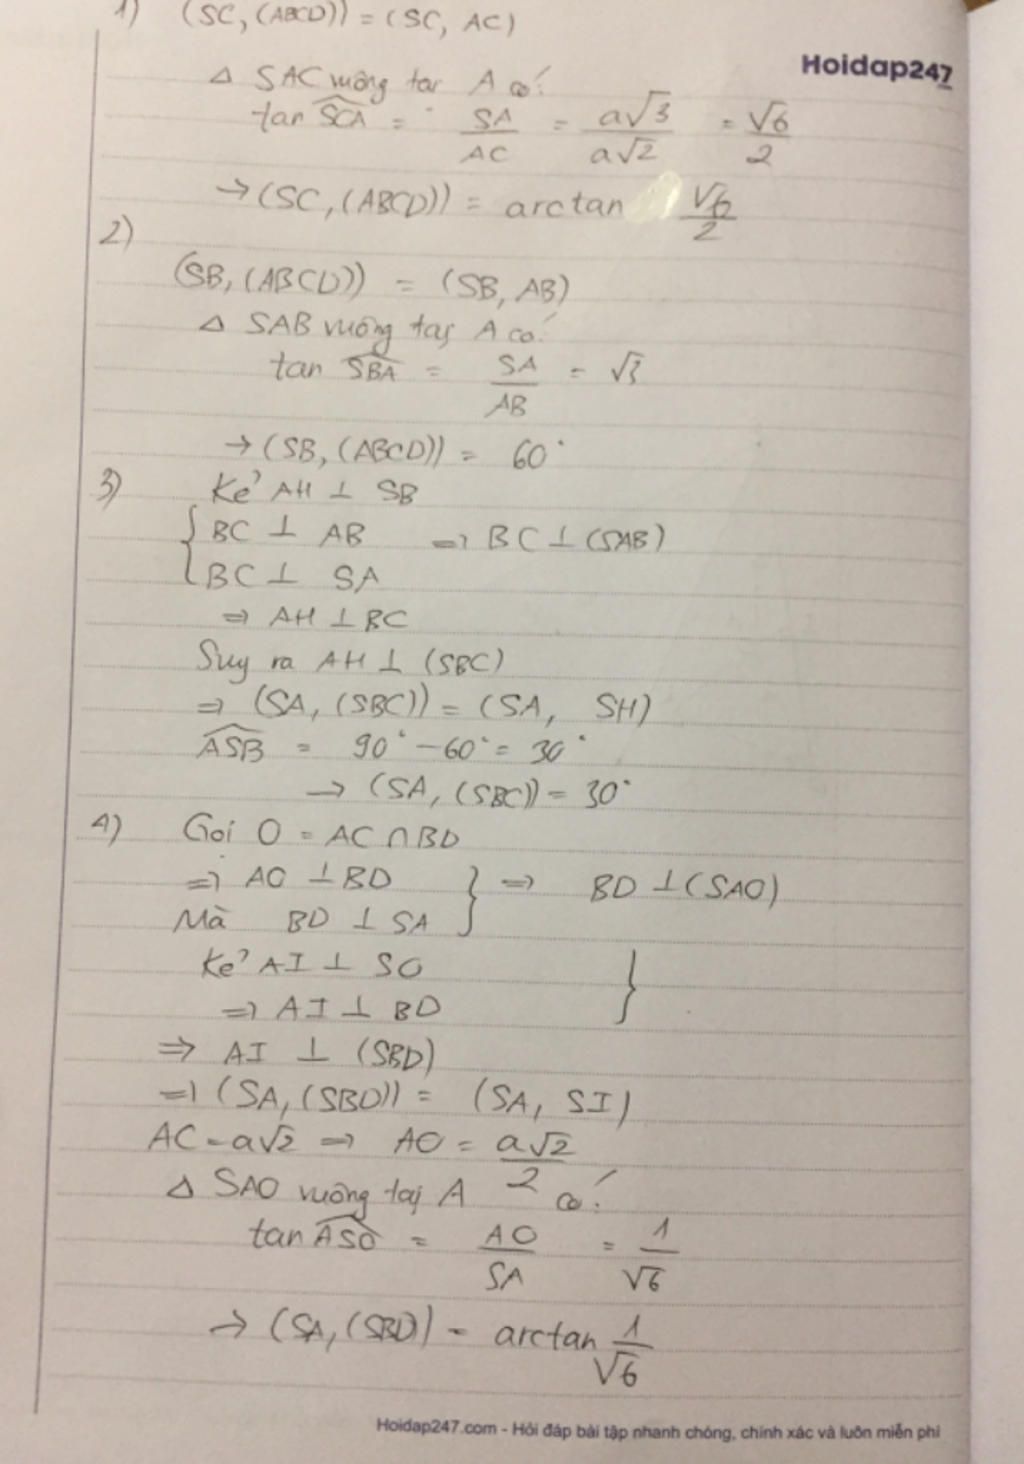 1) (SC, (ABCD)) = (SC, AC)
Hoidap247
Δ SAC vuông tại A có:
tan \widehat{SCA} = \frac{SA}{AC} = \frac{a√3}{a√2} = \frac{√6}{2}
→ (SC, (ABCD)) = arctan \frac{√6}{2}
2)
(SB, (ABCD)) = (SB, AB)
Δ SAB vuông tại A có:
tan \widehat{SBA} = \frac{SA}{AB} = √3
→ (SB, (ABCD)) = 60°
3) Kẻ AH ⊥ SB
{ BC ⊥ AB ⇒ BC ⊥ (SAB)
BC ⊥ SA
⇒ AH ⊥ BC
Suy ra AH ⊥ (SBC)
⇒ (SA, (SBC)) = (SA, SH)
\widehat{ASB} = 90° - 60° = 30°
→ (SA, (SBC)) = 30°
4) Gọi O = AC ∩ BD
⇒ AO ⊥ BD } ⇒ BD ⊥ (SAO)
Mà BD ⊥ SA
Kẻ AI ⊥ SO }
⇒ AI ⊥ BD
⇒ AI ⊥ (SBD)
⇒ (SA, (SBD)) = (SA, SI)
AC = a√2 ⇒ AO = \frac{a√2}{2}
Δ SAO vuông tại A có:
tan \widehat{ASO} = \frac{AO}{SA} = \frac{1}{√6}
→ (SA, (SBD) = arctan \frac{1}{√6}
Hoidap247.com - Hỏi đáp bài tập nhanh chóng, chính xác và luôn miễn phí